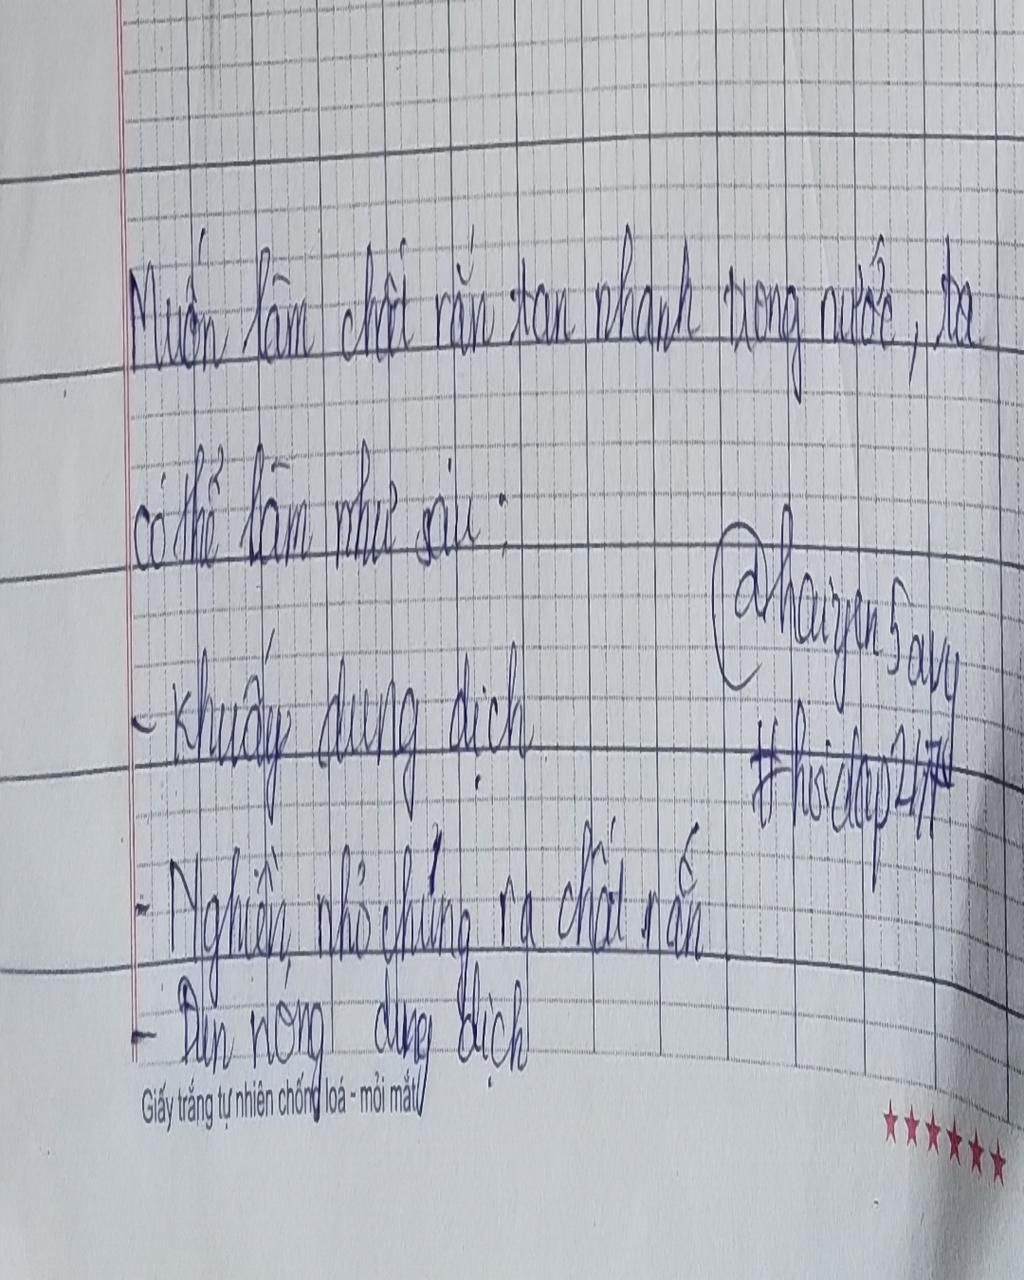 Muốn làm chất rắn tan nhanh trong nước, ta
có thể làm như sau:
@haiyen5avy
#hoidap247
- Khuấy dung dịch
- Nghiền nhỏ chúng ra chất rắn
- Đun nóng dung dịch
Giấy trắng tự nhiên chống loá - mỏi mắt